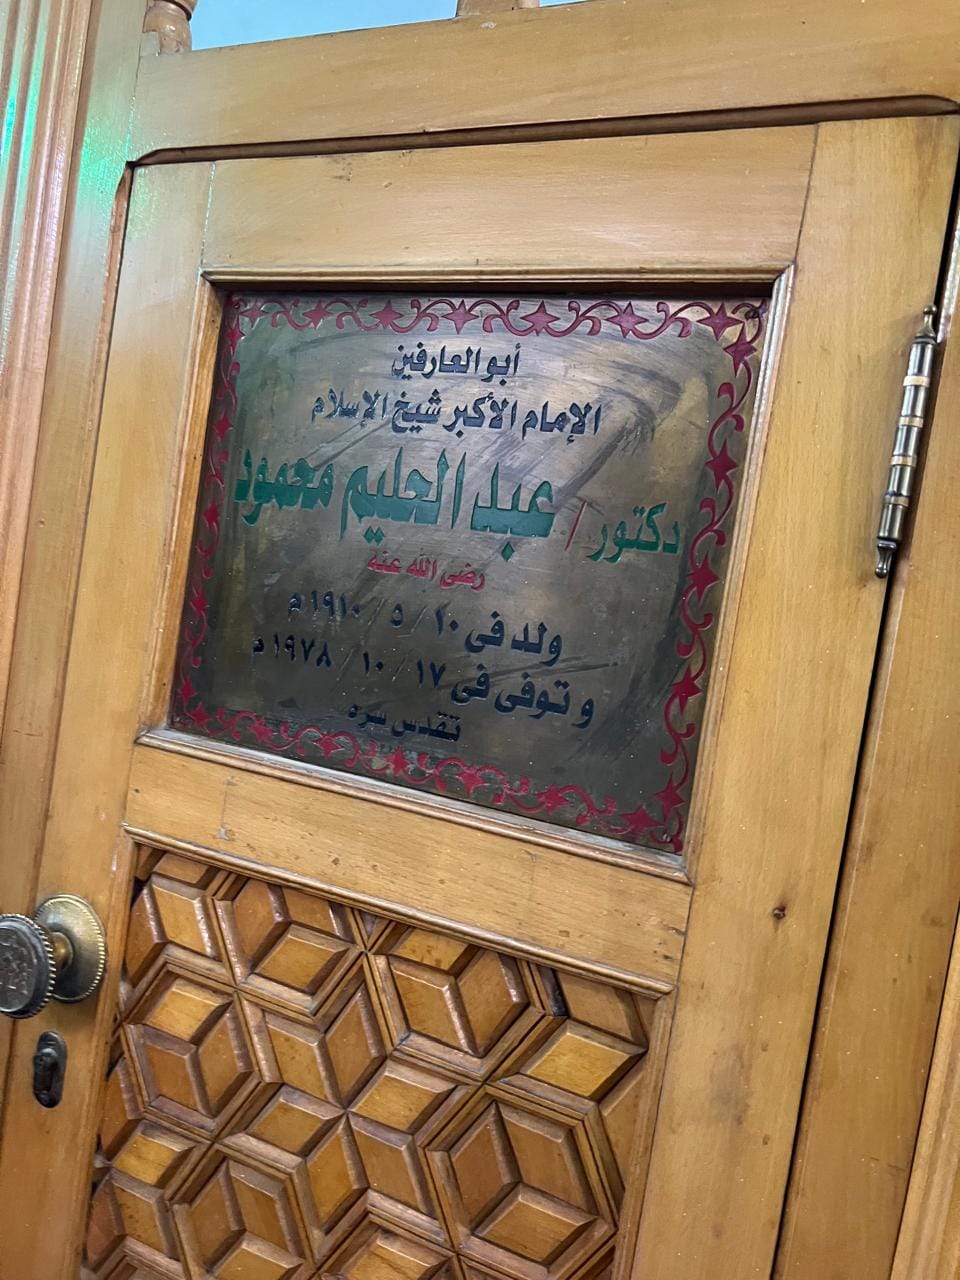 أبو العارفين
الإمام الأكبر شيخ الإسلام
دكتور / عبد الحليم محمود
رضى الله عنة
ولد فى ٢٠ / ٥ / ١٩١٠ م
و توفى فى ١٧ / ١٠ / ١٩٧٨ م
تقدس سره